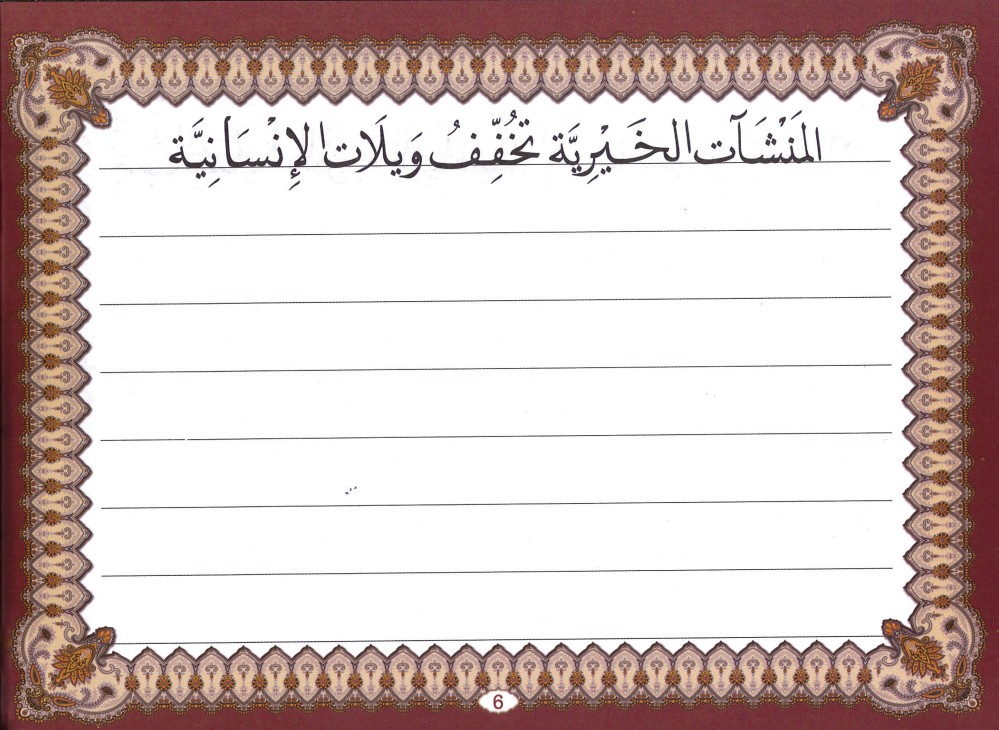 المَنْشَآت الخَيْرِيَّة تُخَفِّفُ وَيلَات الإِنْسَانِيَّة
6